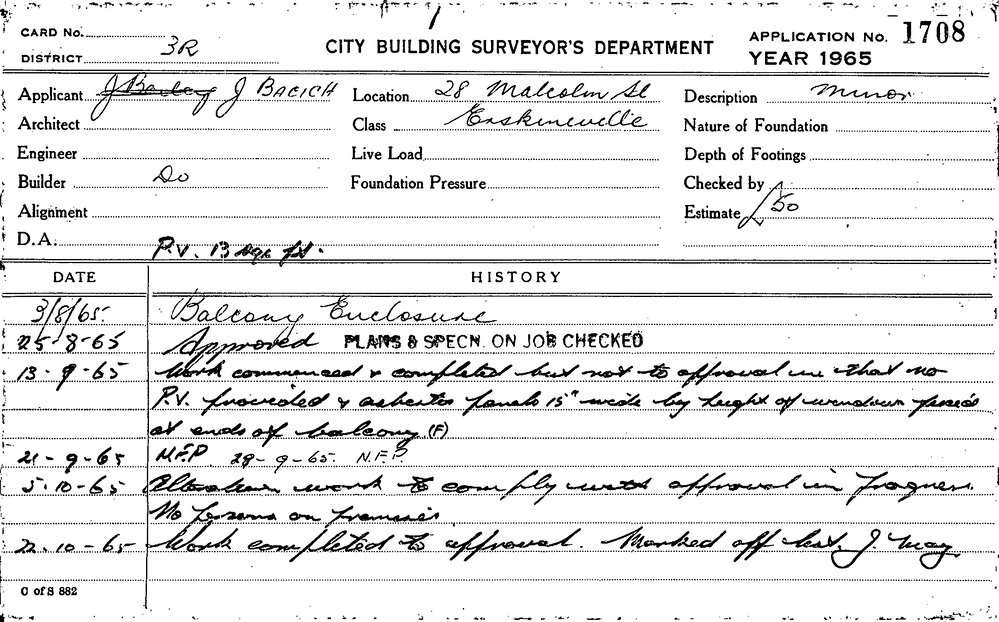 CARD No.
DISTRICT 3R
CITY BUILDING SURVEYOR'S DEPARTMENT
APPLICATION No. 1708
YEAR 1965
Applicant J Bacich
Location 28 Malcolm St
Description Minor
Architect
Class Erskineville
Nature of Foundation
Engineer
Live Load
Depth of Footings
Builder Do
Foundation Pressure
Checked by
Alignment
Estimate £50
D.A. P.V. 13 sqr ft.
DATE HISTORY
3/8/65 Balcony Enclosure
25-8-65 Approved PLANS & SPECN. ON JOB CHECKED
13-9-65 Work commenced & completed but not to approval in that no
P.V. provided & asbestos panels 15" wide by height of window fixed
at ends of balcony (F)
21-9-65 N.F.P. 28-9-65. N.F.P.
5-10-65 Alteration work to comply with approval in progress.
No persons on premises.
22-10-65 Work completed to approval. Marked off list. J. May
C of S 882